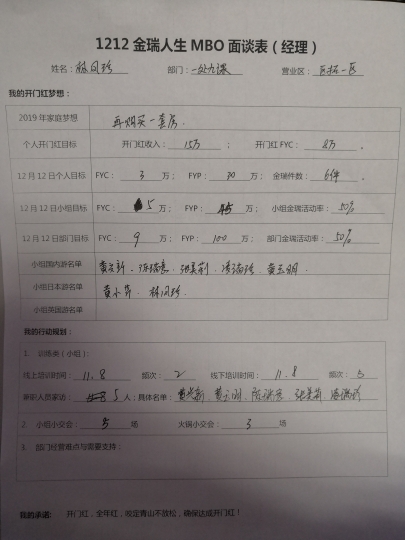 1212 金瑞人生 MBO 面谈表（经理）
姓名： 林凤珍 部门： 一处九课 营业区： 区拓一区
我的开门红梦想：
2019 年家庭梦想 再购买一套房.
个人开门红目标 开门红收入： 15万 ； 开门红 FYC： 8万 .
12 月 12 日个人目标 FYC： 3 万； FYP： 30 万； 金瑞件数： 6件 .
12 月 12 日小组目标 FYC： 5 万； FYP： 万； 小组金瑞活动率： 50%
12 月 12 日部门目标 FYC： 9 万； FYP： 100 万； 部门金瑞活动率： 50%
小组国内游名单
小组日本游名单 黄小萍 . 林凤珍
小组英国游名单
我的行动规划：
1. 训练类（小组）：
线上培训时间： 11.8 频次： 2 线下培训时间： 11.8 频次： 5
兼职人员家访： 5 人；具体名单：
2. 小组小交会： 5 场 火锅小交会： 3 场
3. 部门经营难点与需要支持：
我的承诺： 开门红，全年红，咬定青山不放松，确保达成开门红！